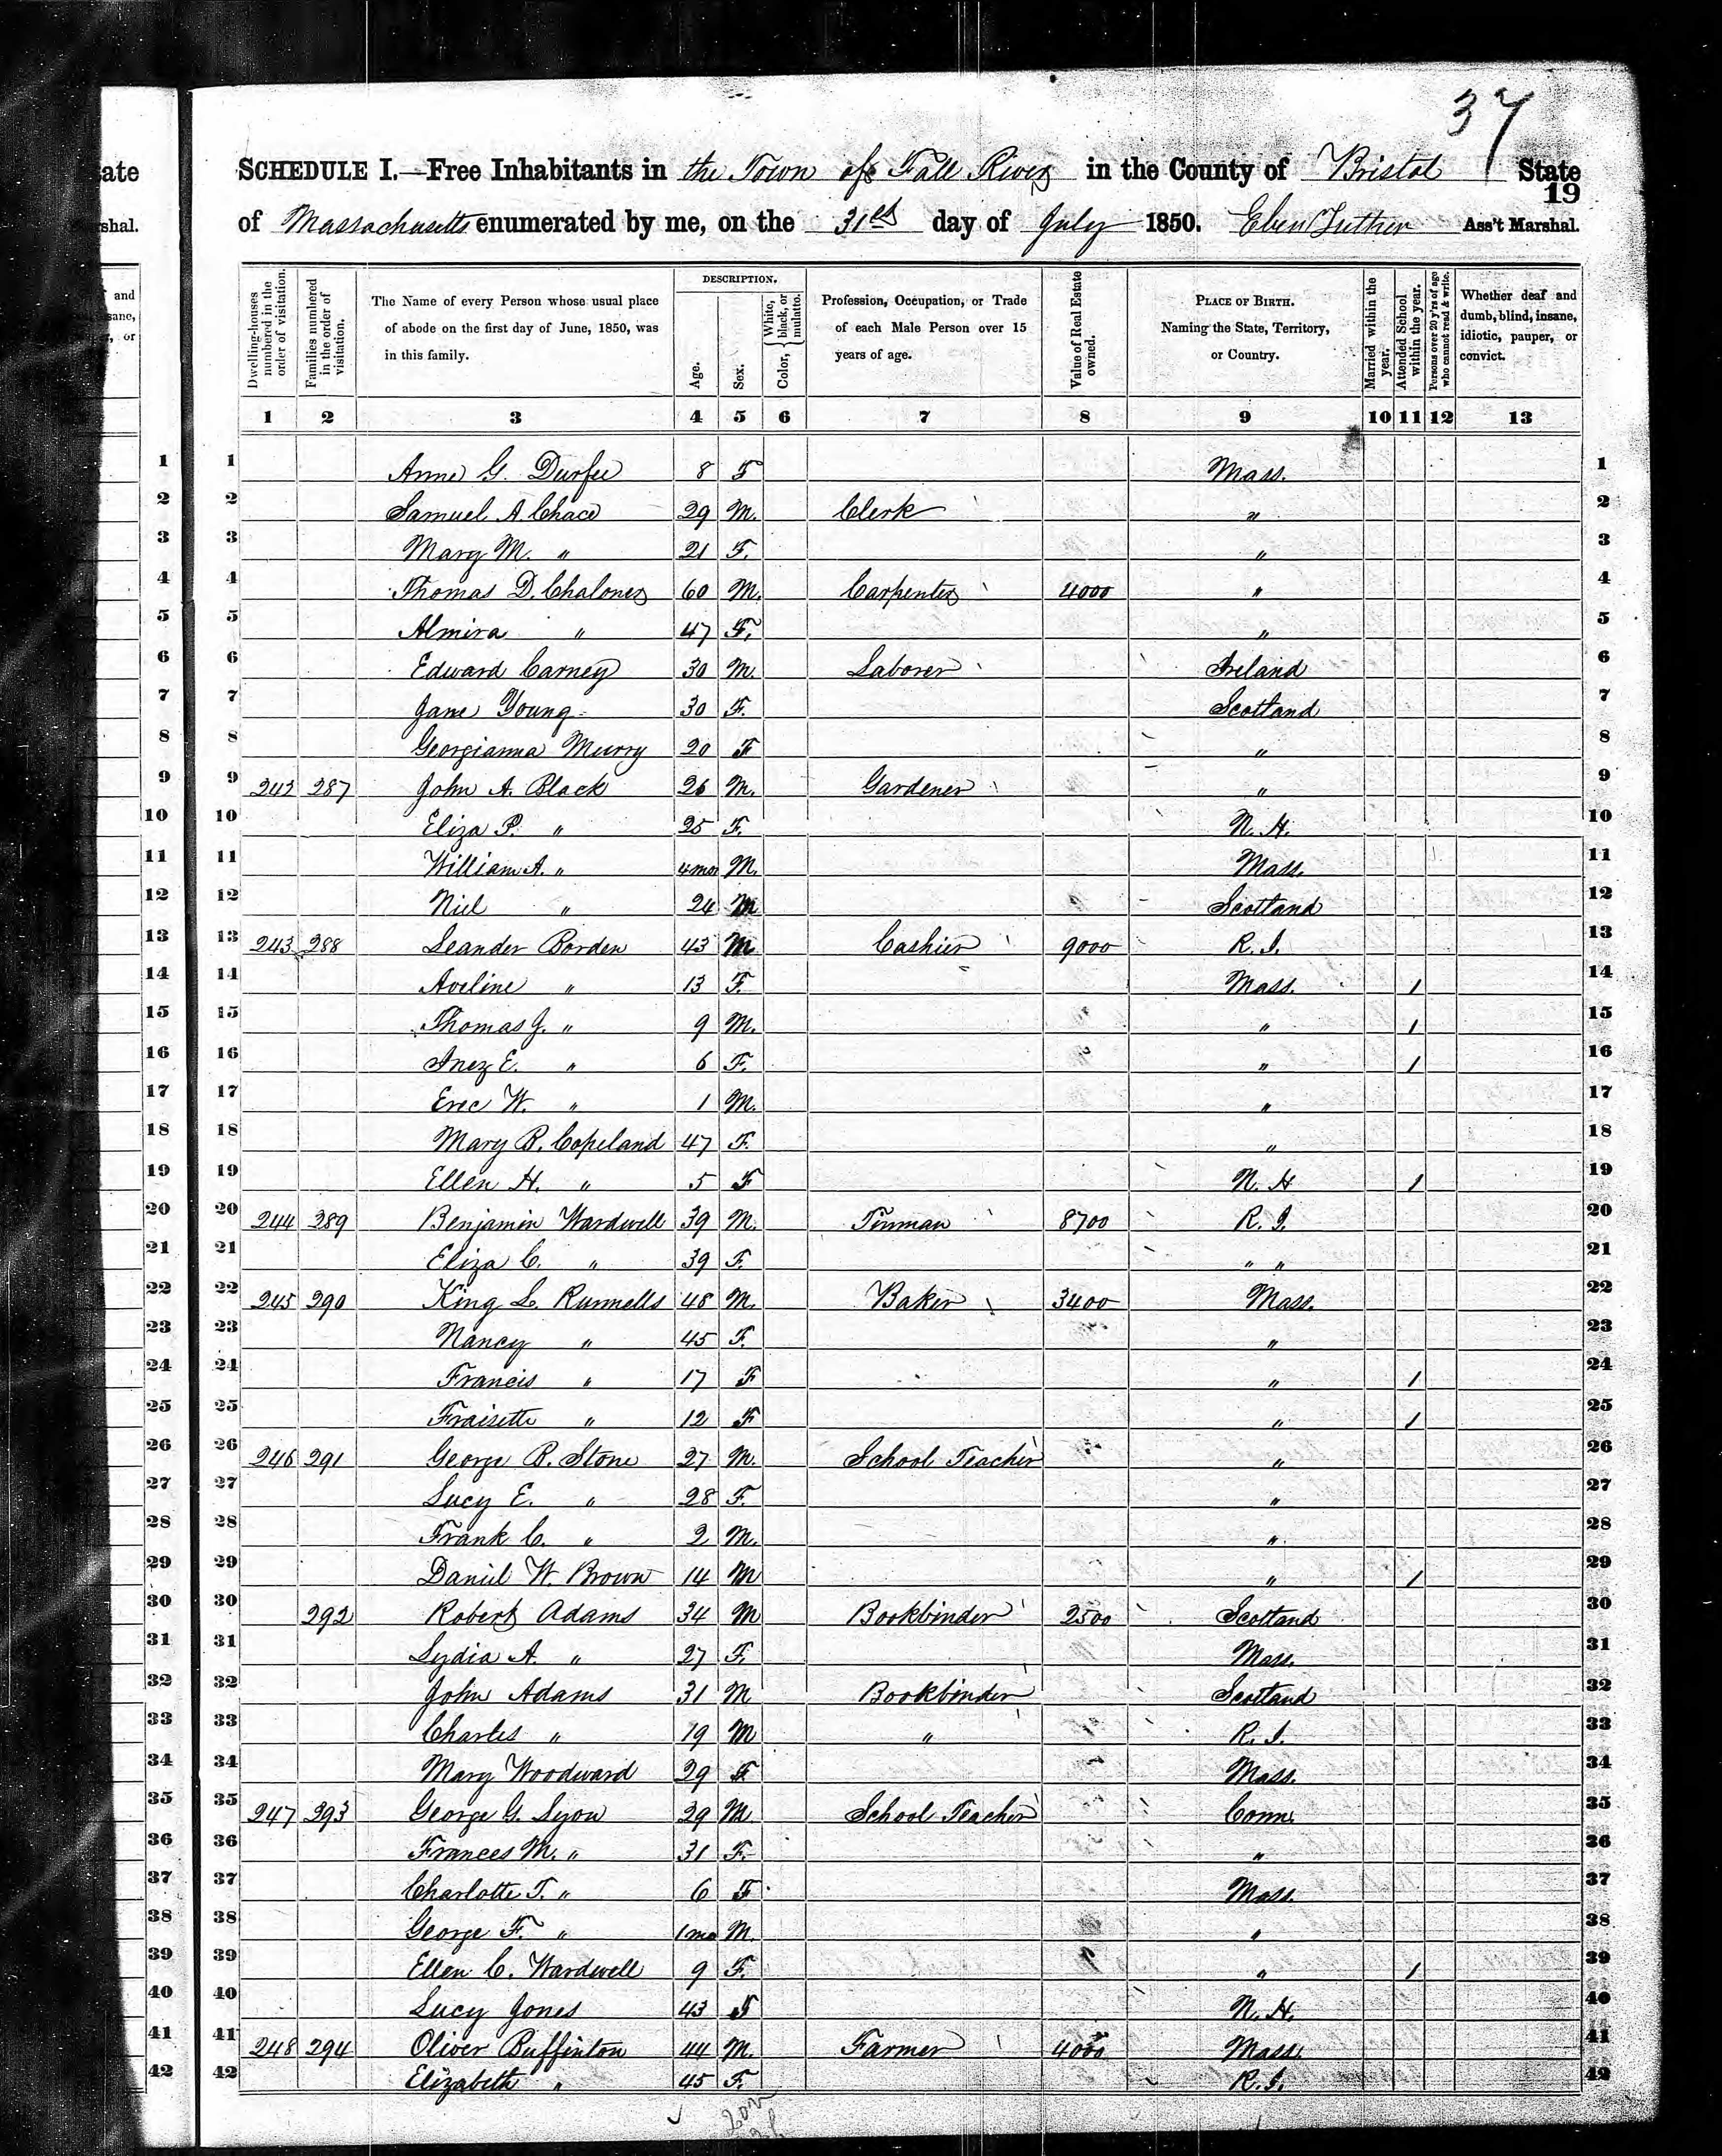 37
SCHEDULE I.—Free Inhabitants in the Town of Fall River in the County of Bristol State
19
of Massachusetts enumerated by me, on the 31st day of July 1850. Eben Luther Ass't Marshal.
Dwelling-houses numbered in the order of visitation.
Families numbered in the order of visitation.
The Name of every Person whose usual place of abode on the first day of June, 1850, was in this family.
DESCRIPTION.
Age.
Sex.
Color, White, black, or mulatto.
Profession, Occupation, or Trade of each Male Person over 15 years of age.
Value of Real Estate owned.
PLACE OF BIRTH. Naming the State, Territory, or Country.
Married within the year.
Attended School within the year.
Persons over 20 y'rs of age who cannot read & write.
Whether deaf and dumb, blind, insane, idiotic, pauper, or convict.
1 2 3 4 5 6 7 8 9 10 11 12 13
1 Anne G. Durfee 8 F Mass. 1
2 Samuel A. Chace 29 M. Clerk " 2
3 Mary M. " 21 F. " 3
4 Thomas D. Chaloner 60 M. Carpenter 4000 " 4
5 Almira " 47 F. " 5
6 Edward Carney 30 M. Laborer Ireland 6
7 Jane Young 30 F. Scotland 7
8 Georgianna Murry 20 F " 8
9 242 287 John A. Black 26 M. Gardener " 9
10 Eliza P. " 25 F. N. H. 10
11 William A. " 4mos M. Mass. 11
12 Niel " 24 M Scotland 12
13 243 288 Leander Borden 43 M Cashier 9000 R. I. 13
14 Aveline " 13 F. Mass. 1 14
15 Thomas J. " 9 M. " 1 15
16 Inez E. " 6 F. " 1 16
17 Eric W. " 1 M. " 17
18 Mary B. Copeland 47 F. " 18
19 Ellen H. " 5 F N. H 1 19
20 244 289 Benjamin Wardwell 39 M. Tinman 8700 R. I. 20
21 Eliza C. " 39 F. " " 21
22 245 290 King L. Runnells 48 M. Baker 3400 Mass. 22
23 Nancy " 45 F. " 23
24 Francis " 17 F " 1 24
25 Fraisette " 12 F " 1 25
26 246 291 George B. Stone 27 M. School Teacher " 26
27 Lucy E. " 28 F. " 27
28 Frank C. " 2 M. " 28
29 Daniel W. Brown 14 M " 1 29
30 292 Robert Adams 34 M Bookbinder 2500 Scotland 30
31 Lydia A. " 27 F. Mass. 31
32 John Adams 31 M Bookbinder Scotland 32
33 Charles " 19 M " R. I. 33
34 Mary Woodward 29 F Mass. 34
35 247 293 George G. Lyon 29 M School Teacher Conn. 35
36 Frances M. " 31 F. " 36
37 Charlotte T. " 6 F Mass. 37
38 George F. " 1mo M. " 38
39 Ellen C. Wardwell 9 F. " 1 39
40 Lucy Jones 43 F N. H. 40
41 248 294 Oliver Buffinton 44 M. Farmer 4000 Mass. 41
42 Elizabeth " 45 F. R. I. 42